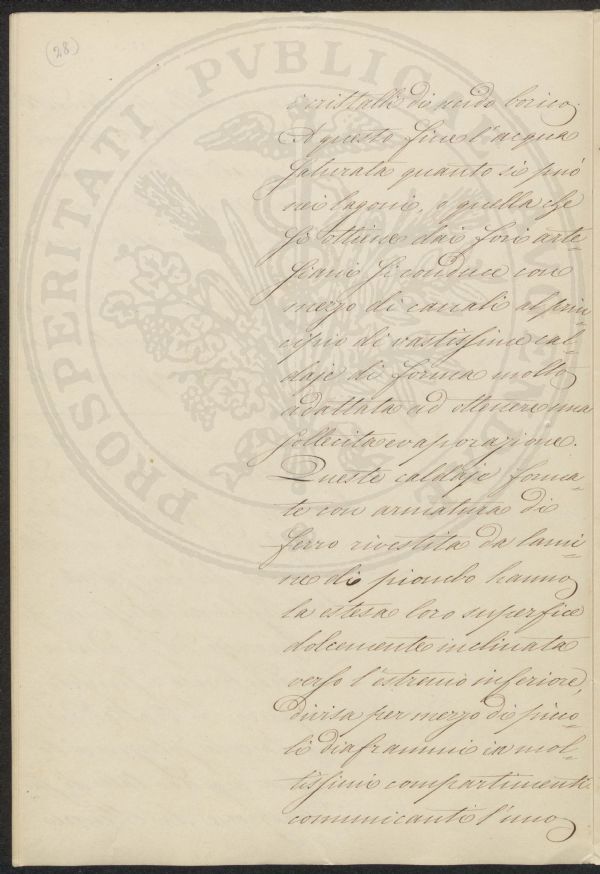 (28)
e cristalli di acido borico.
A questo fine l'acqua
saturata quanto si può
nei lagoni, e quella che
si ottiene dai fori arte=
siani si conduce con
mezzo di canali al prin=
cipio di vastissime cal=
daje di forma molto
adattata ad ottenere una
sollecita evaporazione.
Queste caldaje forma=
te con armatura di
ferro rivestita da lami=
ne di piombo hanno
la estesa loro superfice
dolcemente inclinata
verso l'estremo inferiore,
divisa per mezzo di picco=
li diaframmi in mol=
tissimi compartimenti
comunicanti l'uno
PROSPERITATI PVBLICAE